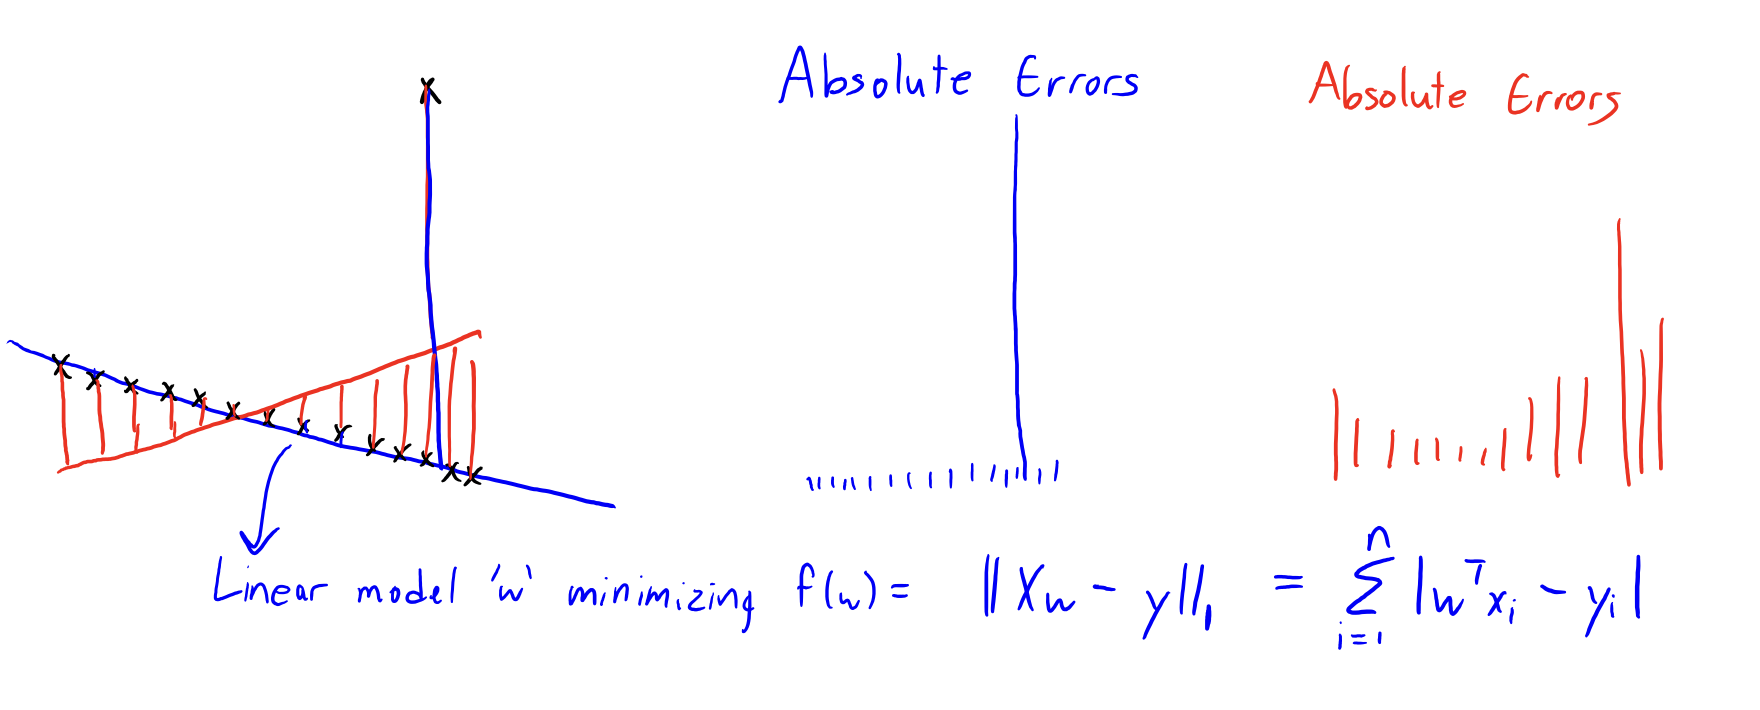 Absolute Errors
Absolute Errors
Linear model 'w' minimizing f(w) = ||Xw - y||₁ = ∑ⁿᵢ₌₁ |wᵀxᵢ - yᵢ|